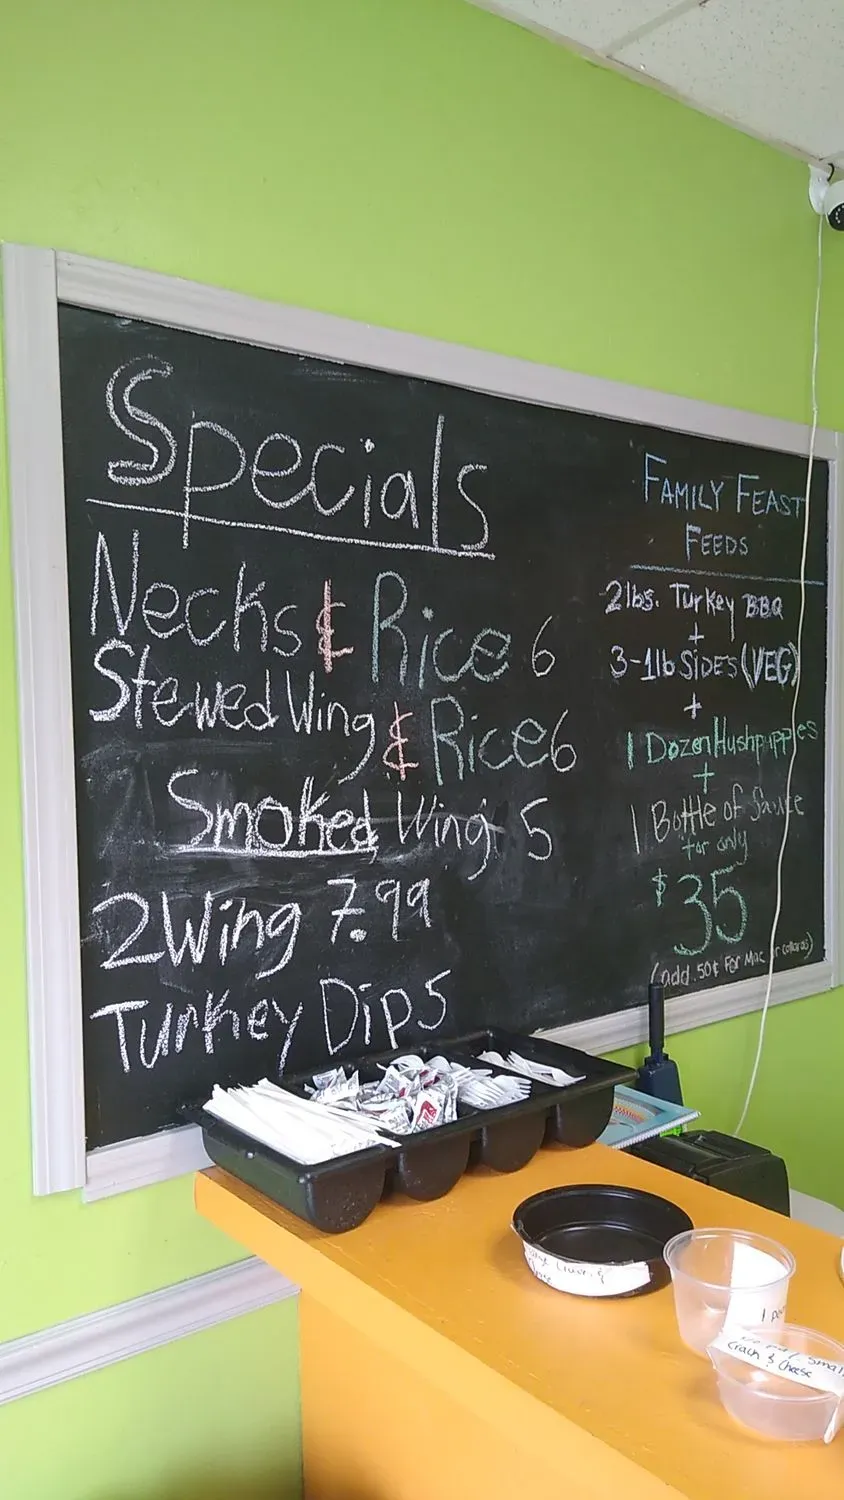 Specials
Necks & Rice 6
Stewed Wing & Rice 6
Smoked Wing 5
2 Wing 7.99
Turkey Dip 5
FAMILY FEAST
FEEDS
2lbs. Turkey BBQ
+
3-1lb SIDES (VEG)
+
1 Dozen Hushpuppies
+
1 Bottle of Sauce
for only
$35
(add .50¢ For Mac or collards)
1
Small
Crack & Cheese